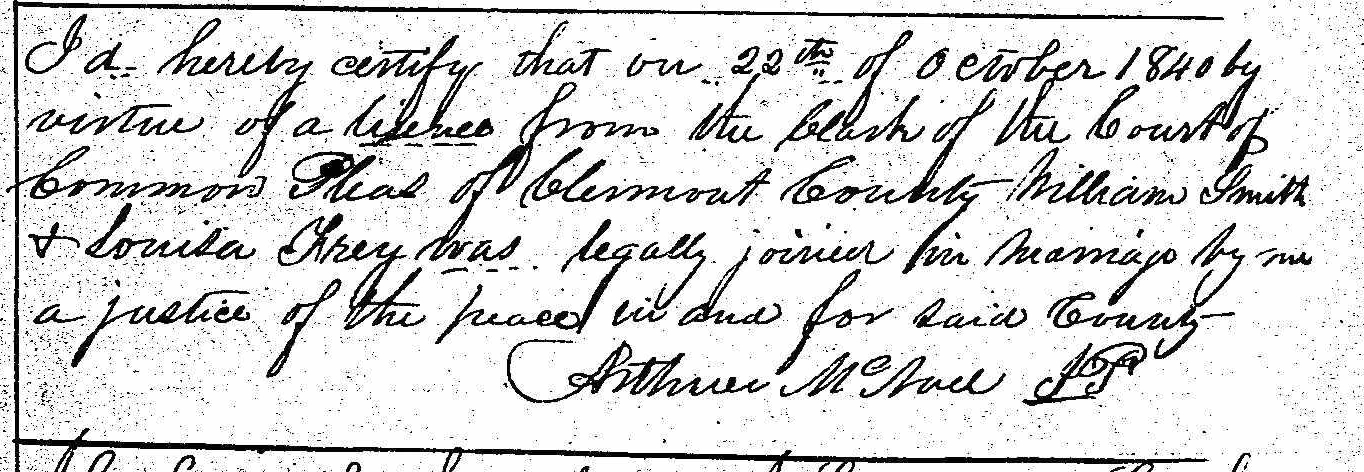 I d hereby certify that on 22th of October 1840 by
virtue of a lisence from the Clark of the Court of
Common Pleas of Clermont County William Smith
& Louisa Frey was legally joined in Marriage by me
a justice of the peace in and for said County
Arthur McNeel JP